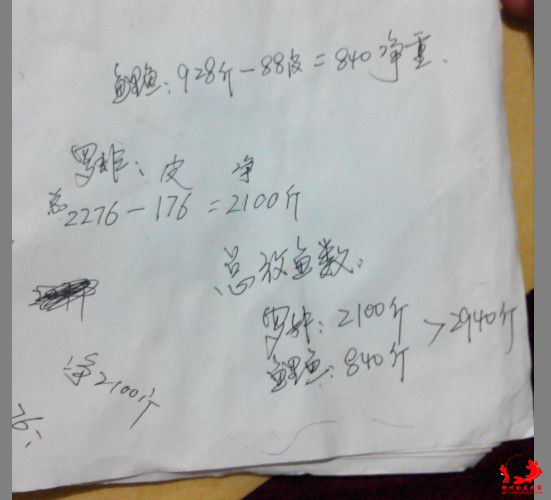 鲤鱼：928斤－88皮＝840净重．
罗非：皮 净
总2276－176＝2100斤
总放鱼数：
罗非：2100斤 >2940斤
鲤鱼：840斤
净2100斤
76；